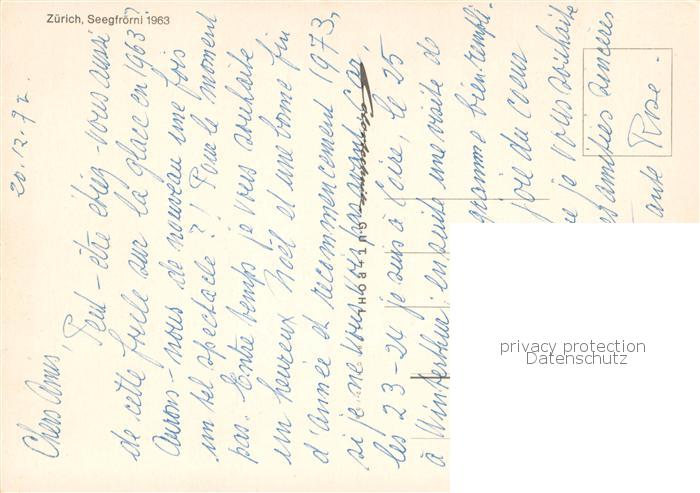 Zürich, Seegfrörni 1963
20.12.72.
Chers Amis,
Peut-être étiez-vous aussi
de cette foule sur la glace en 1963?
Aurons-nous de nouveau une fois
un tel spectacle?! Pour le moment
pas. Entre temps je vous souhaite
un heureux Noël et une bonne fin
d'année et recommencement 1973,
si je ne vous vois pas avant. Car,
les 23-24 je suis à Coire, le 25
à Winterthur, ensuite une visite de
gramme bien rempli.
joie du coeur
que je vous souhaite
et amitiés sincères
Rose.
PHOTO
privacy protection
Datenschutz